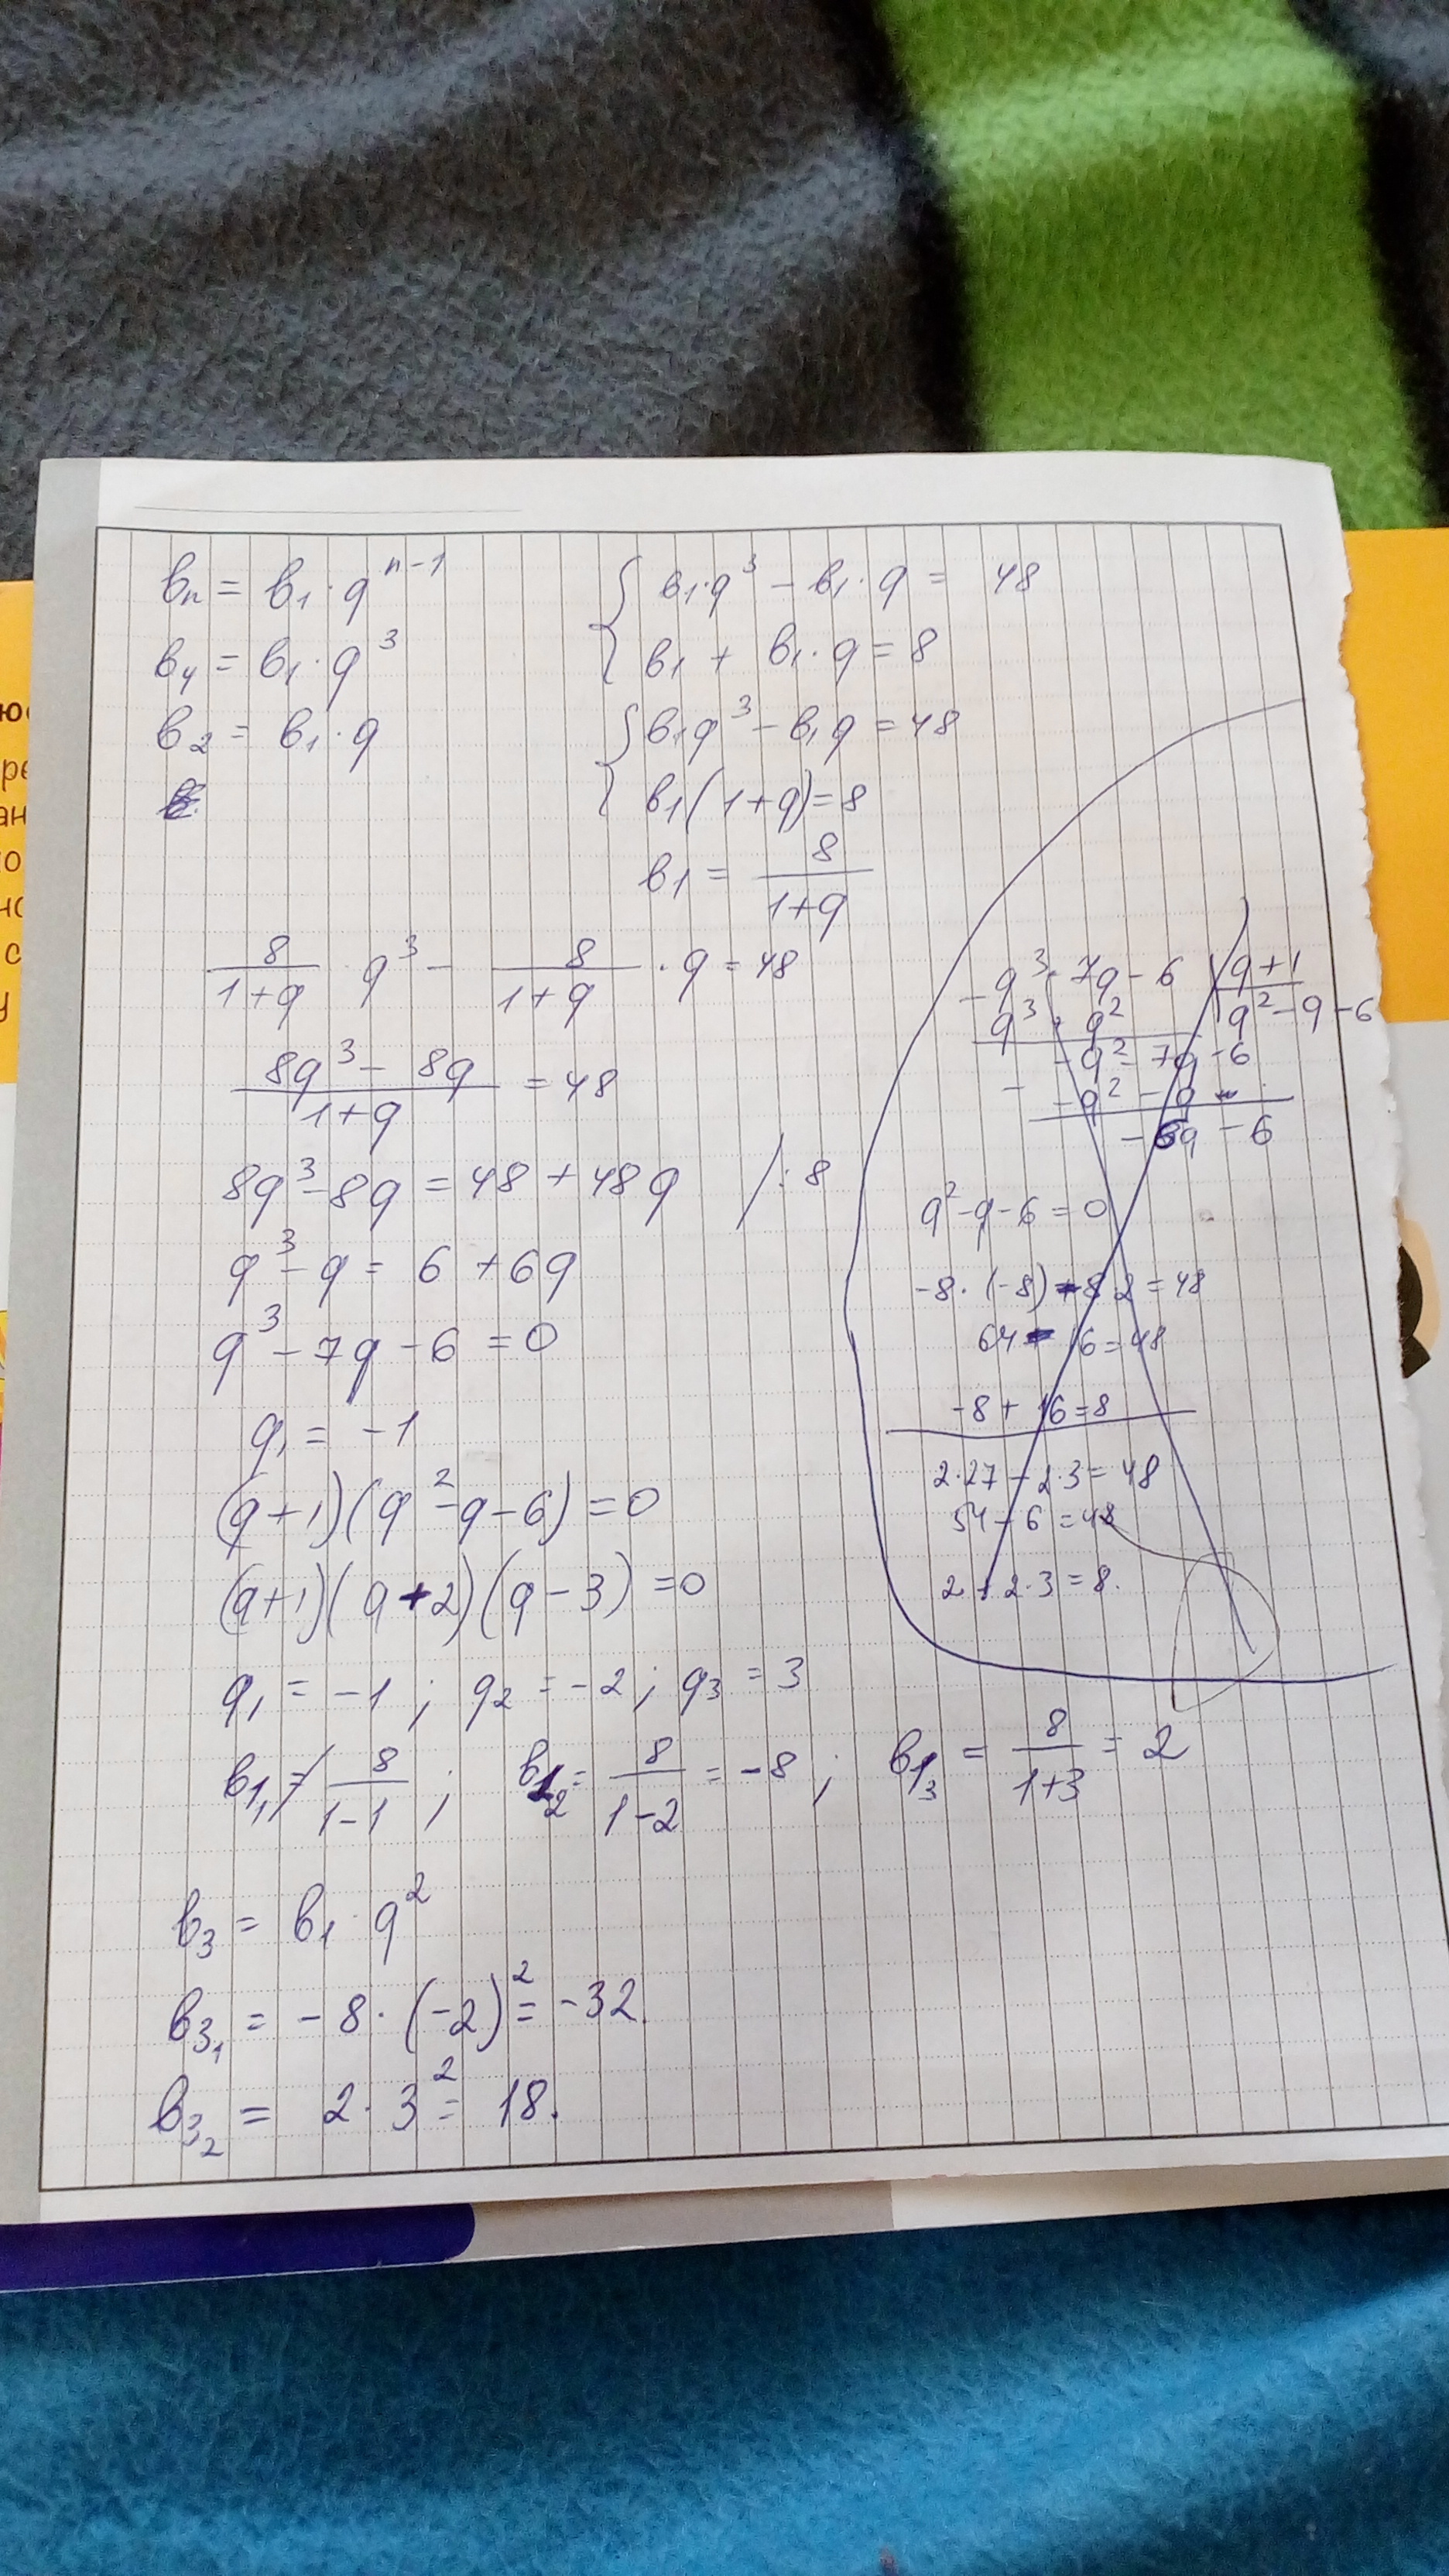 bₙ = b₁ · qⁿ⁻¹
b₄ = b₁ · q³
b₂ = b₁ · q
{ b₁·q³ – b₁·q = 48
b₁ + b₁·q = 8
{ b₁q³ – b₁q = 48
b₁(1+q) = 8
b₁ = 8/(1+q)
8/(1+q) · q³ – 8/(1+q) · q = 48
(8q³ – 8q)/(1+q) = 48
8q³ – 8q = 48 + 48q /:8
q³ – q = 6 + 6q
q³ – 7q – 6 = 0
q₁ = –1
(q+1)(q² – q – 6) = 0
(q+1)(q+2)(q–3) = 0
q₁ = –1 ; q₂ = –2 ; q₃ = 3
b₁₁ ≠ 8/(1–1) ; b₁₂ = 8/(1–2) = –8 ; b₁₃ = 8/(1+3) = 2
b₃ = b₁ · q²
b₃₁ = –8 · (–2)² = –32.
b₃₂ = 2 · 3² = 18.
q³ – 7q – 6 | q+1
q³ + q² | q² – q – 6
–q² – 7q – 6
–q² – q
–6q – 6
q² – q – 6 = 0
–8 · (–8) – 8·2 = 48
64 – 16 = 48
–8 + 16 = 8
2·27 – 2·3 = 48
54 – 6 = 48
2 + 2·3 = 8.
ю
ре
ан
о
но
с
у